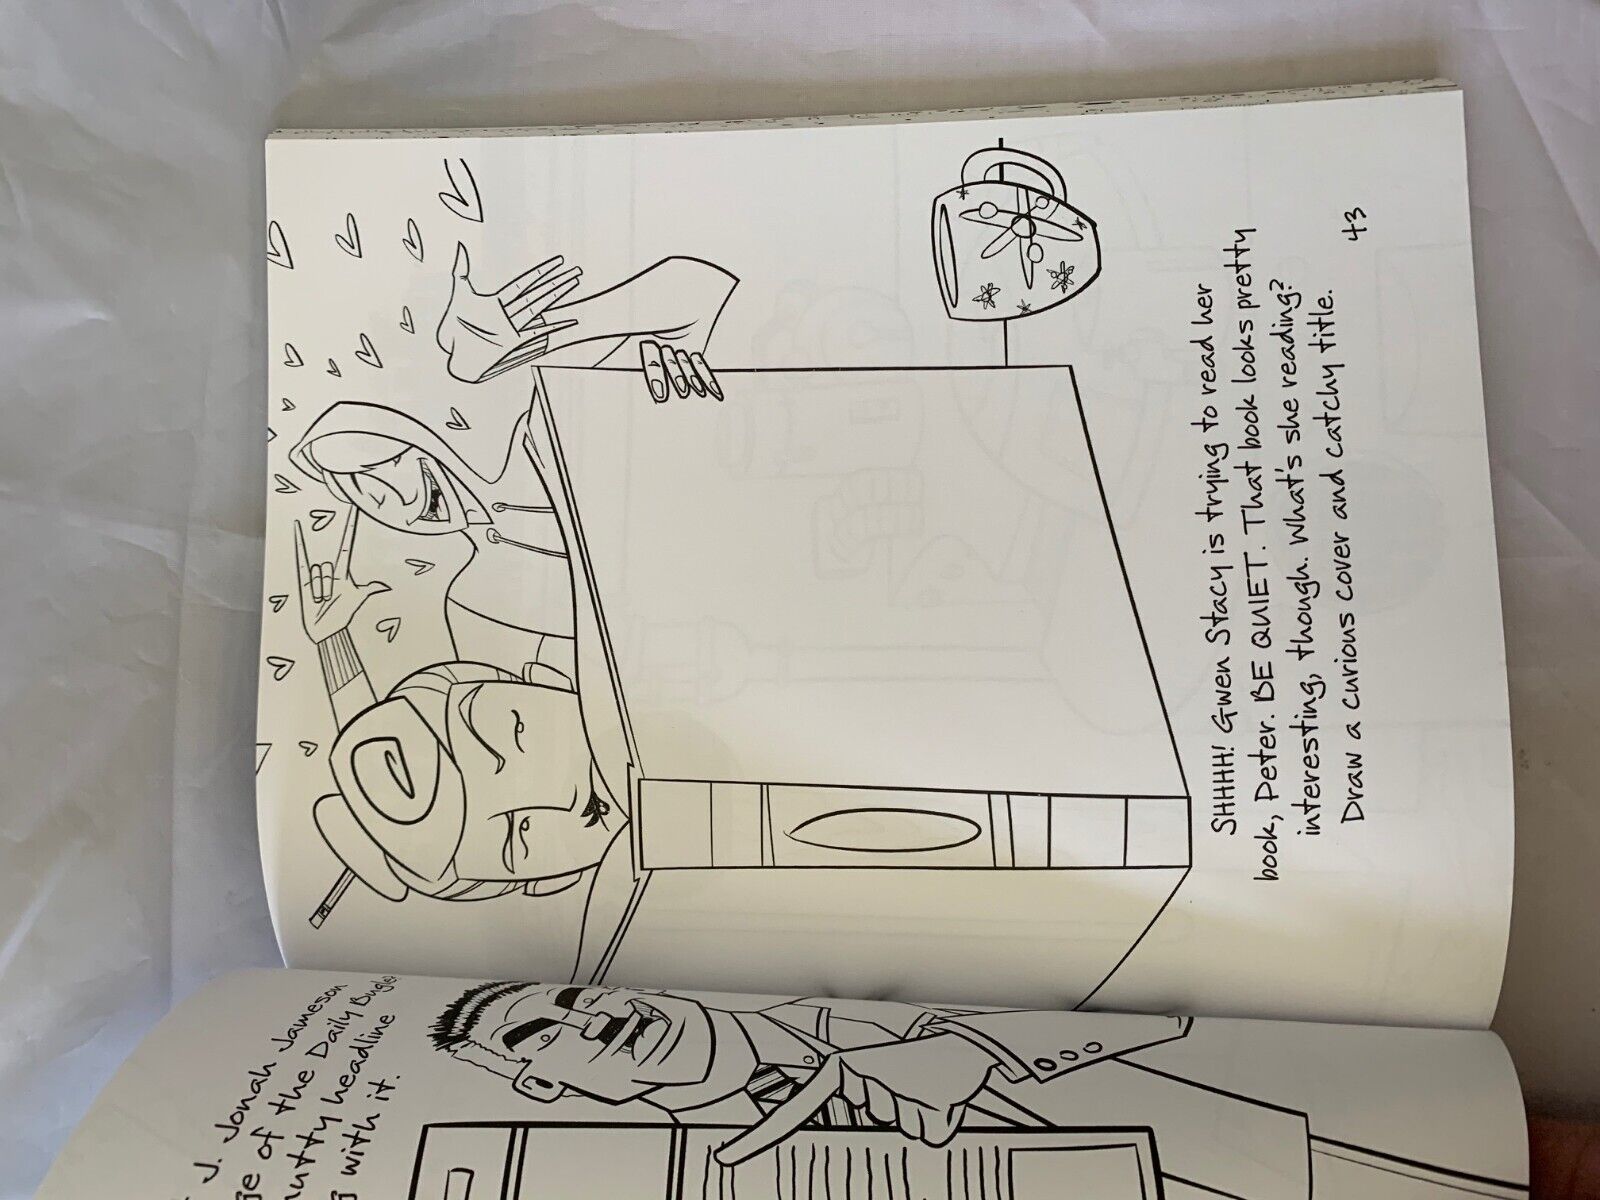 J. Jonah Jameson
of the Daily Bugle
nutty headline
with it.
SHHHH! Gwen Stacy is trying to read her
book, Peter. BE QUIET. That book looks pretty
interesting, though. What's she reading?
Draw a curious cover and catchy title.
43